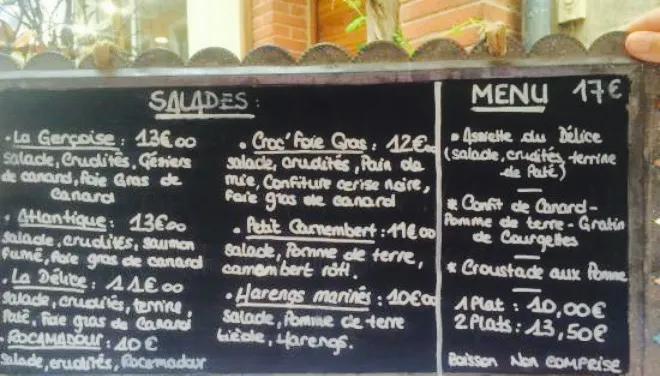 SALADES:
• La Gersoise : 13€00
Salade, Crudités, Gésiers
de canard, Foie Gras de
Canard
• Atlantique : 13€00
Salade, crudités, saumon
fumé, foie gras de canard
• La Délice : 11€00
Salade, crudités, terrine,
Paté, Foie gras de Canard
• ROCAMADOUR : 10€
Salade, crudités, Rocamadour
• Croc' Foie Gras : 12€00
salade, crudités, Pain de
mie, Confiture cerise noire,
Foie gras de canard
• Petit Camembert : 11€00
salade, Pomme de terre,
camembert rôti.
• Harengs marinés : 10€00
Salade, Pomme de terre
tiède, Harengs.
MENU 17€
* Assiette du Délice
(salade, crudités, terrine
de Paté)
* Confit de Canard -
Pomme de terre - Gratin
de Courgettes
* Croustade aux Pomme
1 Plat : 10,00€
2 Plats : 13,50€
Boisson Non COMPRISE